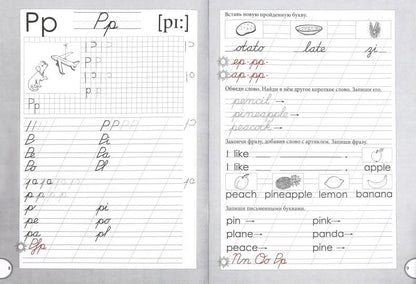 Pp Pp [pı:]
Pp
P P P P
P Pi
Pe Pa
Po Pl
p p p p
p p p p
p pi
pe po
pa pl
Pp
Вставь новую пройденную букву.
otato late zi
ep. pp.
ap. pp.
Обведи слово. Найди в нём другое короткое слово. Запиши его.
pencil →
pineapple →
peacock →
Закончи фразу, добавив слово с артиклем. Запиши фразу.
I like .
I like . apple
peach pineapple lemon banana
Запиши письменными буквами.
pin → pink →
plane → panda →
peace → pine →
Nn Oo Pp